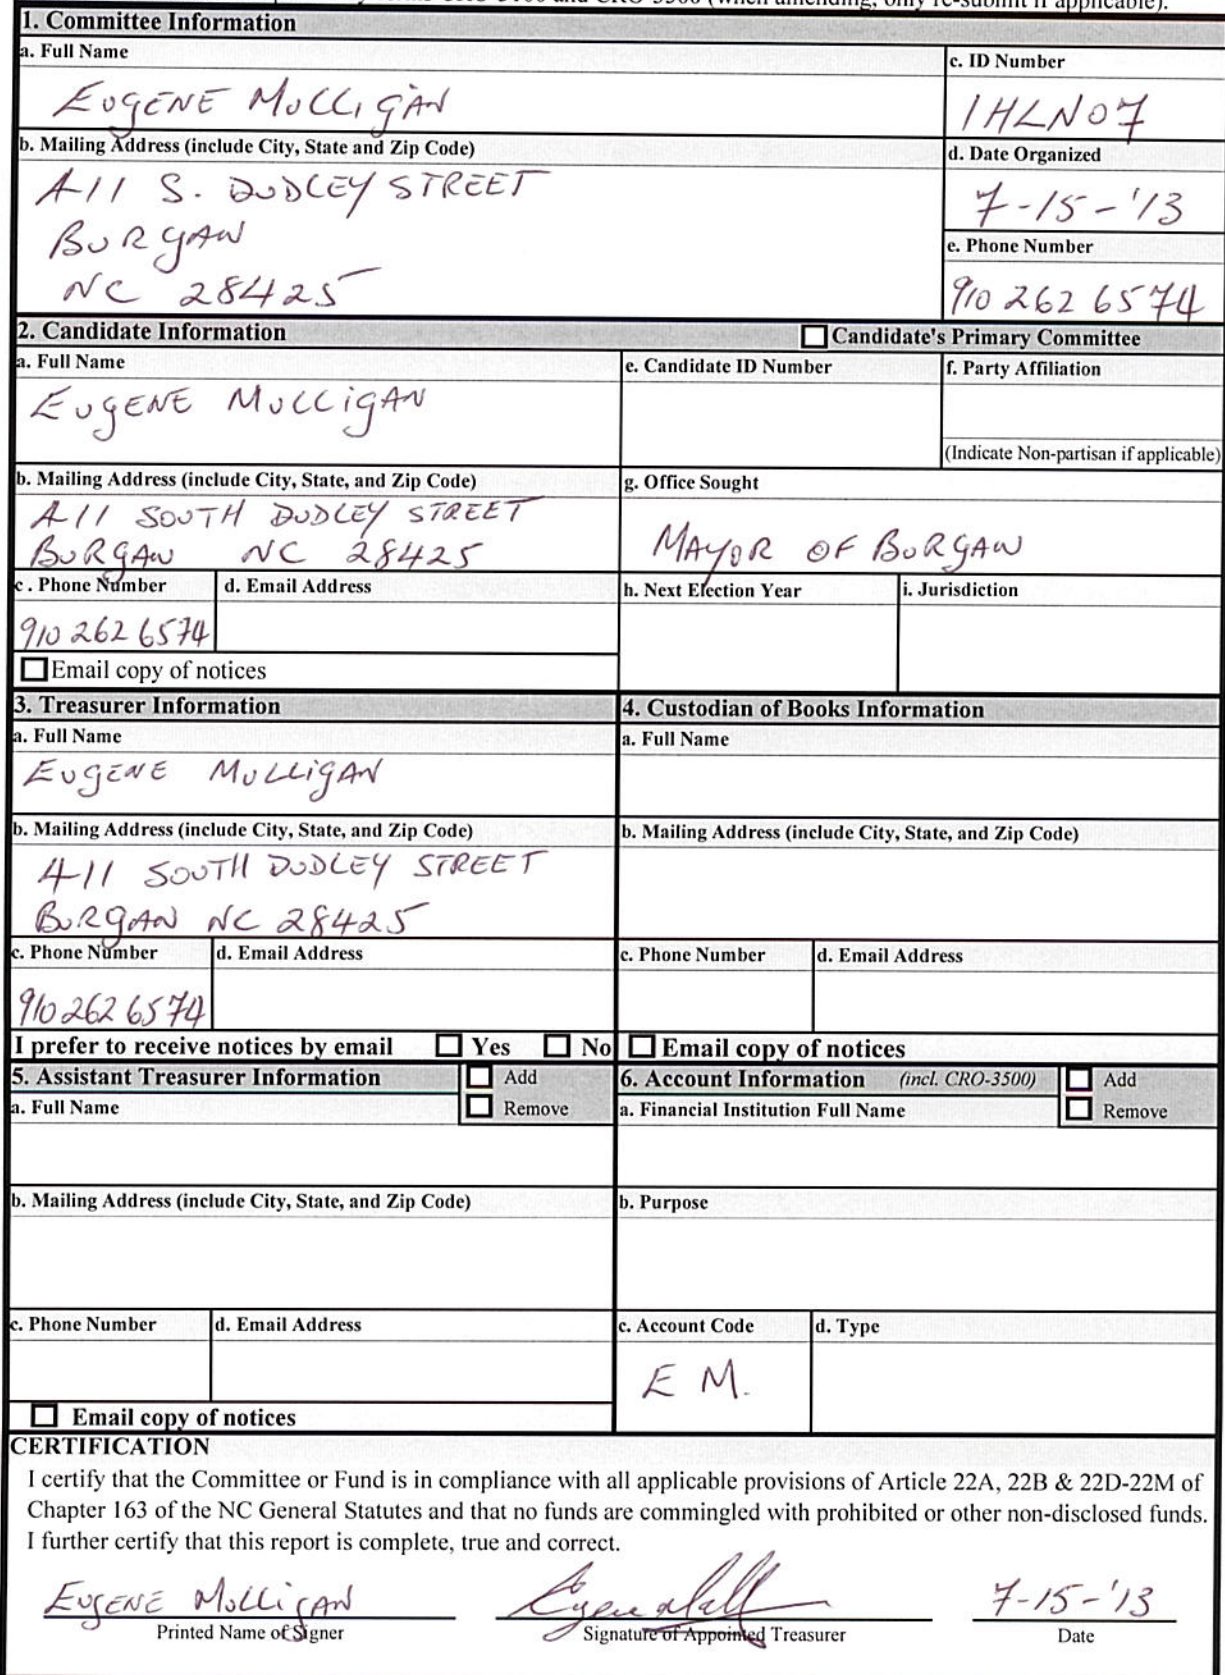 1. Committee Information
a. Full Name
EUGENE MULLIGAN
c. ID Number
1HLN07
b. Mailing Address (include City, State and Zip Code)
411 S. DUDLEY STREET
BURGAW
NC 28425
d. Date Organized
7-15-'13
e. Phone Number
910 262 6574
2. Candidate Information
Candidate's Primary Committee
a. Full Name
EUGENE MULLIGAN
e. Candidate ID Number
f. Party Affiliation
(Indicate Non-partisan if applicable)
b. Mailing Address (include City, State, and Zip Code)
411 SOUTH DUDLEY STREET
BURGAW NC 28425
g. Office Sought
MAYOR OF BURGAW
c. Phone Number
910 262 6574
d. Email Address
h. Next Election Year
i. Jurisdiction
Email copy of notices
3. Treasurer Information
a. Full Name
EUGENE MULLIGAN
b. Mailing Address (include City, State, and Zip Code)
411 SOUTH DUDLEY STREET
BURGAW NC 28425
c. Phone Number
910 262 6574
d. Email Address
I prefer to receive notices by email Yes No
4. Custodian of Books Information
a. Full Name
b. Mailing Address (include City, State, and Zip Code)
c. Phone Number
d. Email Address
Email copy of notices
5. Assistant Treasurer Information
Add
Remove
a. Full Name
b. Mailing Address (include City, State, and Zip Code)
c. Phone Number
d. Email Address
Email copy of notices
6. Account Information (incl. CRO-3500)
Add
Remove
a. Financial Institution Full Name
b. Purpose
c. Account Code
E M.
d. Type
CERTIFICATION
I certify that the Committee or Fund is in compliance with all applicable provisions of Article 22A, 22B & 22D-22M of
Chapter 163 of the NC General Statutes and that no funds are commingled with prohibited or other non-disclosed funds.
I further certify that this report is complete, true and correct.
EUGENE MULLIGAN
7-15-'13
Printed Name of Signer
Signature of Appointed Treasurer
Date